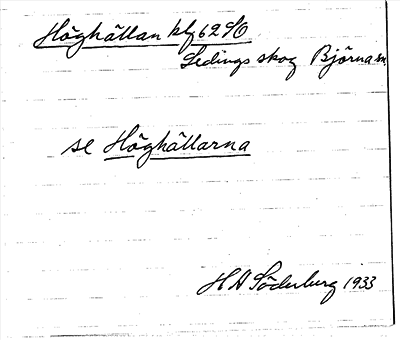 Höghällan kbg 62 SO
Ledings skog Björna sn.
se Höghällarna
H A Söderburg 1933